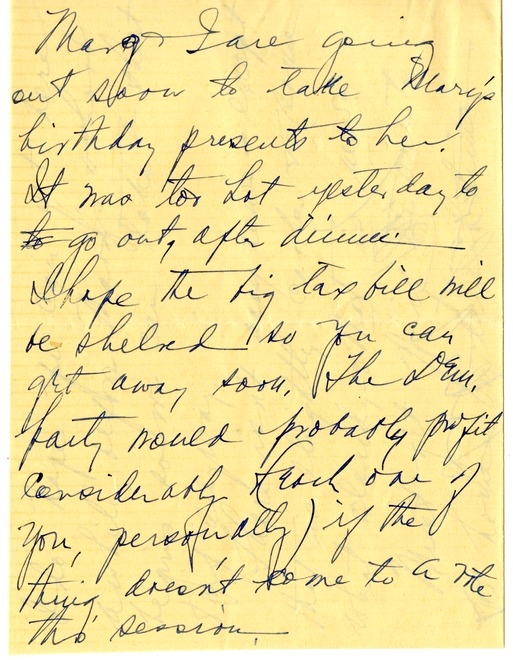 Marg & I are going
out soon to take Mary's
birthday presents to her.
It was too hot yesterday to
to go out, after dinner.
I hope the big tax bill will
be shelved so you can
get away soon. The Dem.
party would probably profit
considerably (each one of
you, personally) if the
thing doesn't come to a vote
this session.